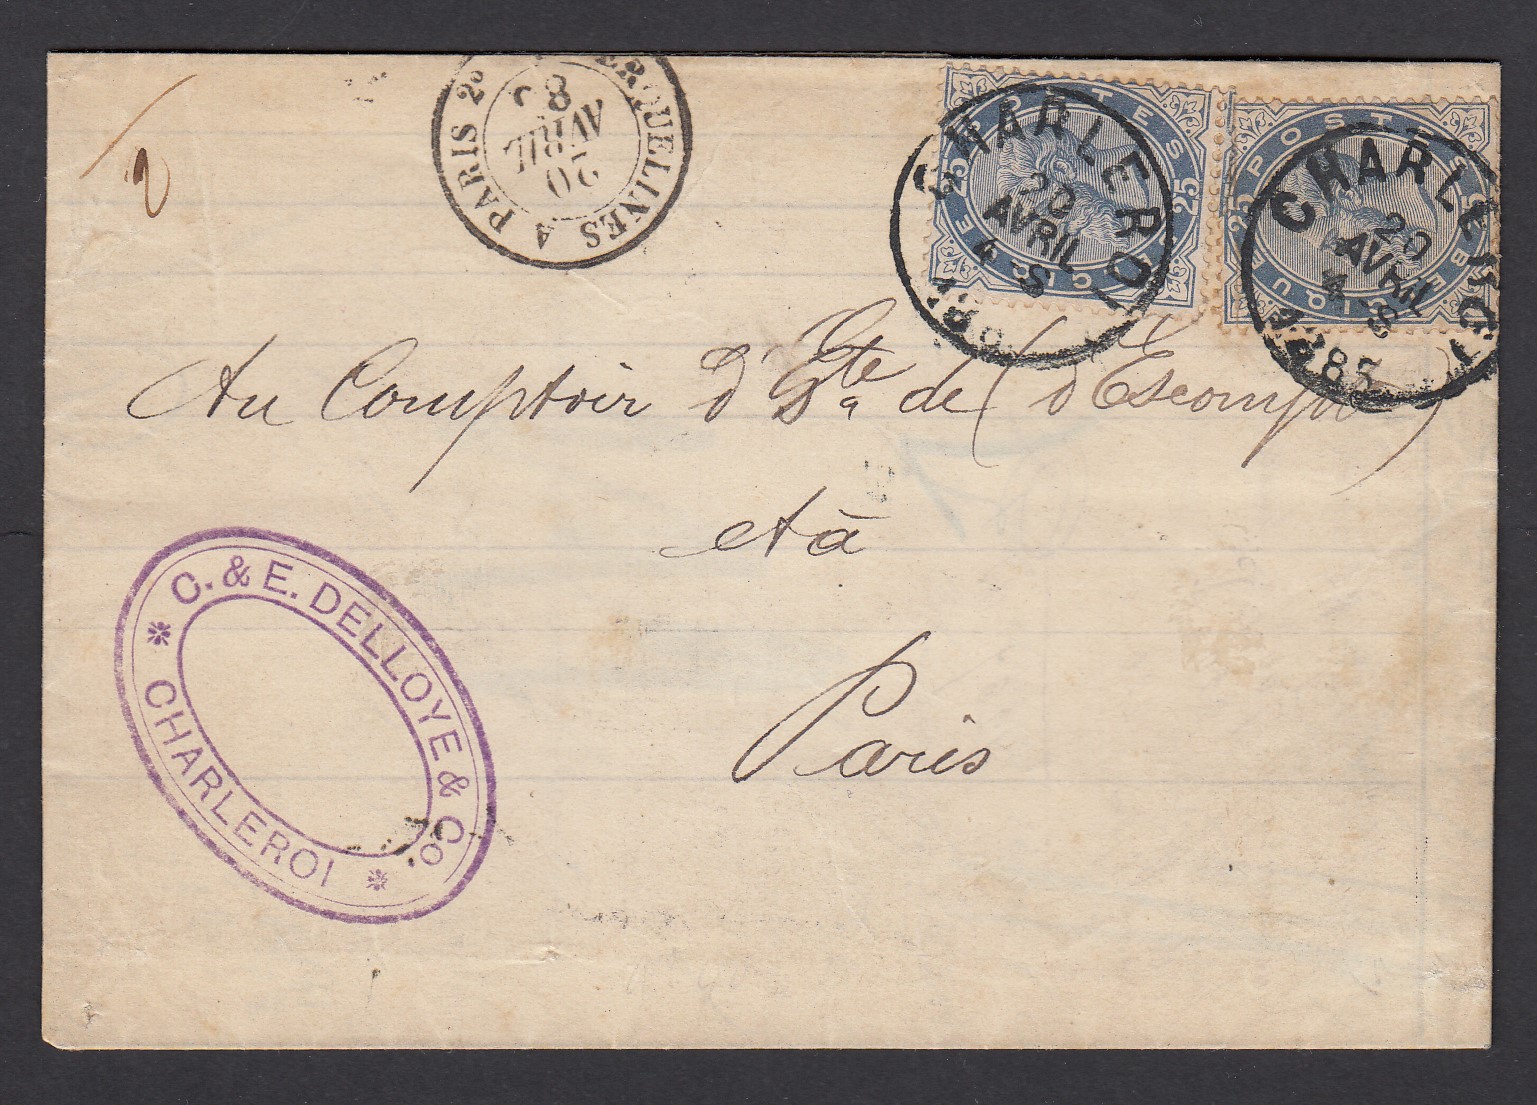 A PARIS 2°ERQUELINES
20
AVRIL
8
POSTES
25 25
CHARLEROI
20
AVRIL
4-S
POSTES
25
BELGIQUE
CHARLEROI
20
AVRIL
4-S
1885
2
Au Comptoir d'Ste de (d'Escompte)
et à
Paris
C. & E. DELLOYE & Co
* CHARLEROI *